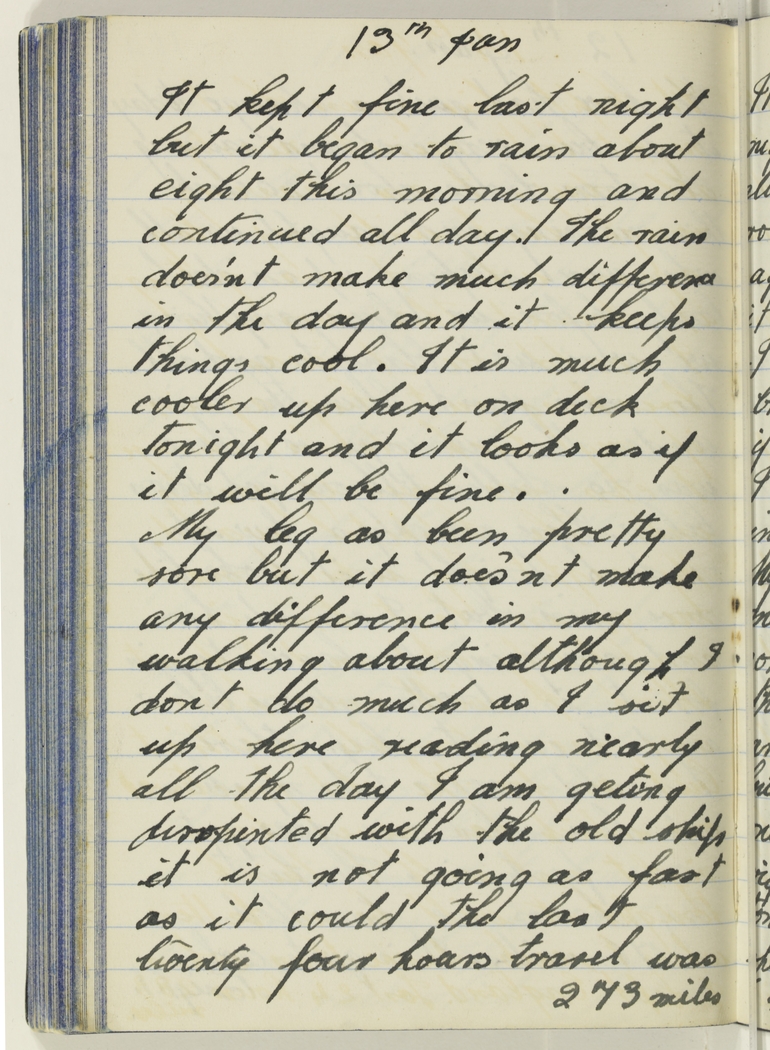 13th Jan
It kept fine last night
but it began to rain about
eight this morning and
continued all day. The rain
does'nt make much difference
in the day and it keeps
things cool. It is much
cooler up here on deck
tonight and it looks as if
it will be fine.
My leg as been pretty
sore but it does'nt make
any difference in my
walking about although I
don't do much as I sit
up here reading nearly
all the day I am geting
disopinted with the old ship
it is not going as fast
as it could the last
twenty four hours travel was
273 miles